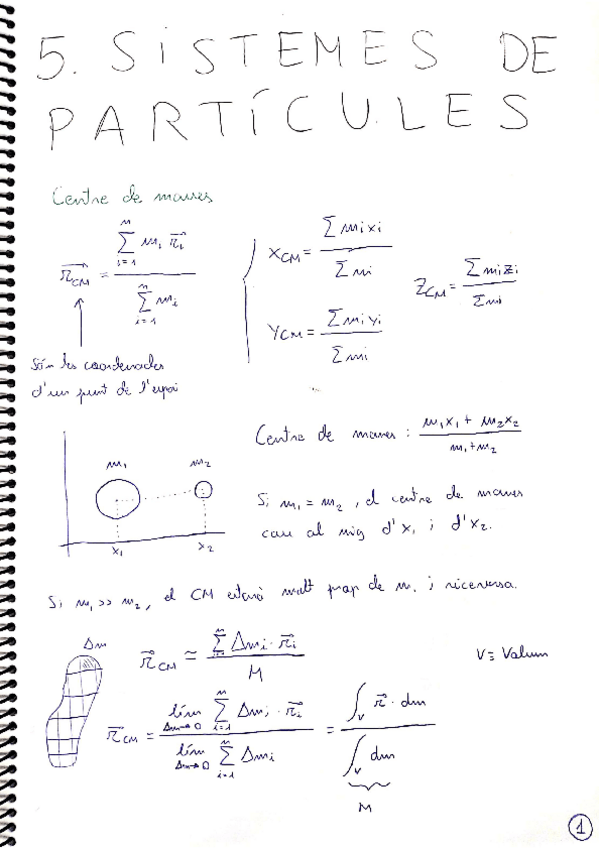 5. SISTEMES DE
PARTÍCULES
Centre de masses
$\vec{r}_{CM} = \frac{\sum_{i=1}^{n} m_i \vec{r}_i}{\sum_{i=1}^{n} m_i}$
$X_{CM} = \frac{\sum m_i x_i}{\sum m_i}$
$Z_{CM} = \frac{\sum m_i z_i}{\sum m_i}$
$Y_{CM} = \frac{\sum m_i y_i}{\sum m_i}$
Són les coordenades
d'un punt de l'espai
Centre de masses : $\frac{m_1 x_1 + m_2 x_2}{m_1 + m_2}$
m₁ m₂
x₁ x₂
Si m₁ = m₂, el centre de masses
cau al mig d'x₁ i d'x₂.
Si m₁ >> m₂, el CM estarà molt prop de m₁ i viceversa.
Δm
$\vec{r}_{CM} \simeq \frac{\sum_{i=1}^{n} \Delta m_i \cdot \vec{r}_i}{M}$
V ≡ Volum
$\vec{r}_{CM} = \frac{\lim_{\Delta m \to 0} \sum_{i=1}^{n} \Delta m_i \cdot \vec{r}_i}{\lim_{\Delta m \to 0} \sum_{i=1}^{n} \Delta m_i} = \frac{\int_V \vec{r} \cdot dm}{\int_V dm}$
M
1